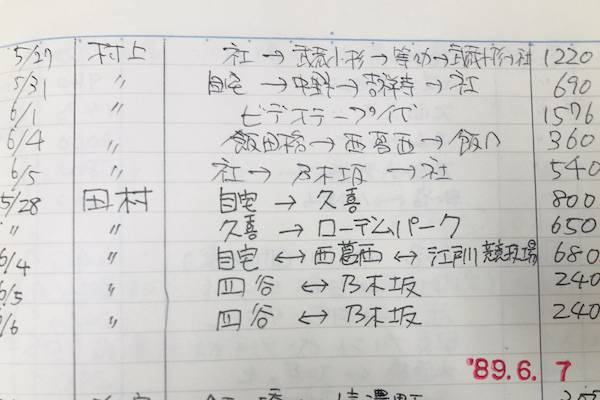 5/27 村上 社→武蔵小杉→等々力→武蔵小杉→社 1220
5/31 〃 自宅→中野→吉祥寺→社 690
6/1 〃 ビデオテープ代 1576
6/4 〃 飯田橋→西葛西→飯〃 360
6/5 〃 社→乃木坂→社 540
5/28 田村 自宅→久喜 800
〃 〃 久喜→ローデムパーク 650
6/4 〃 自宅↔西葛西↔江戸川競技場 680
6/5 〃 四谷↔乃木坂 240
6/6 〃 四谷↔乃木坂 240
'89.6.7